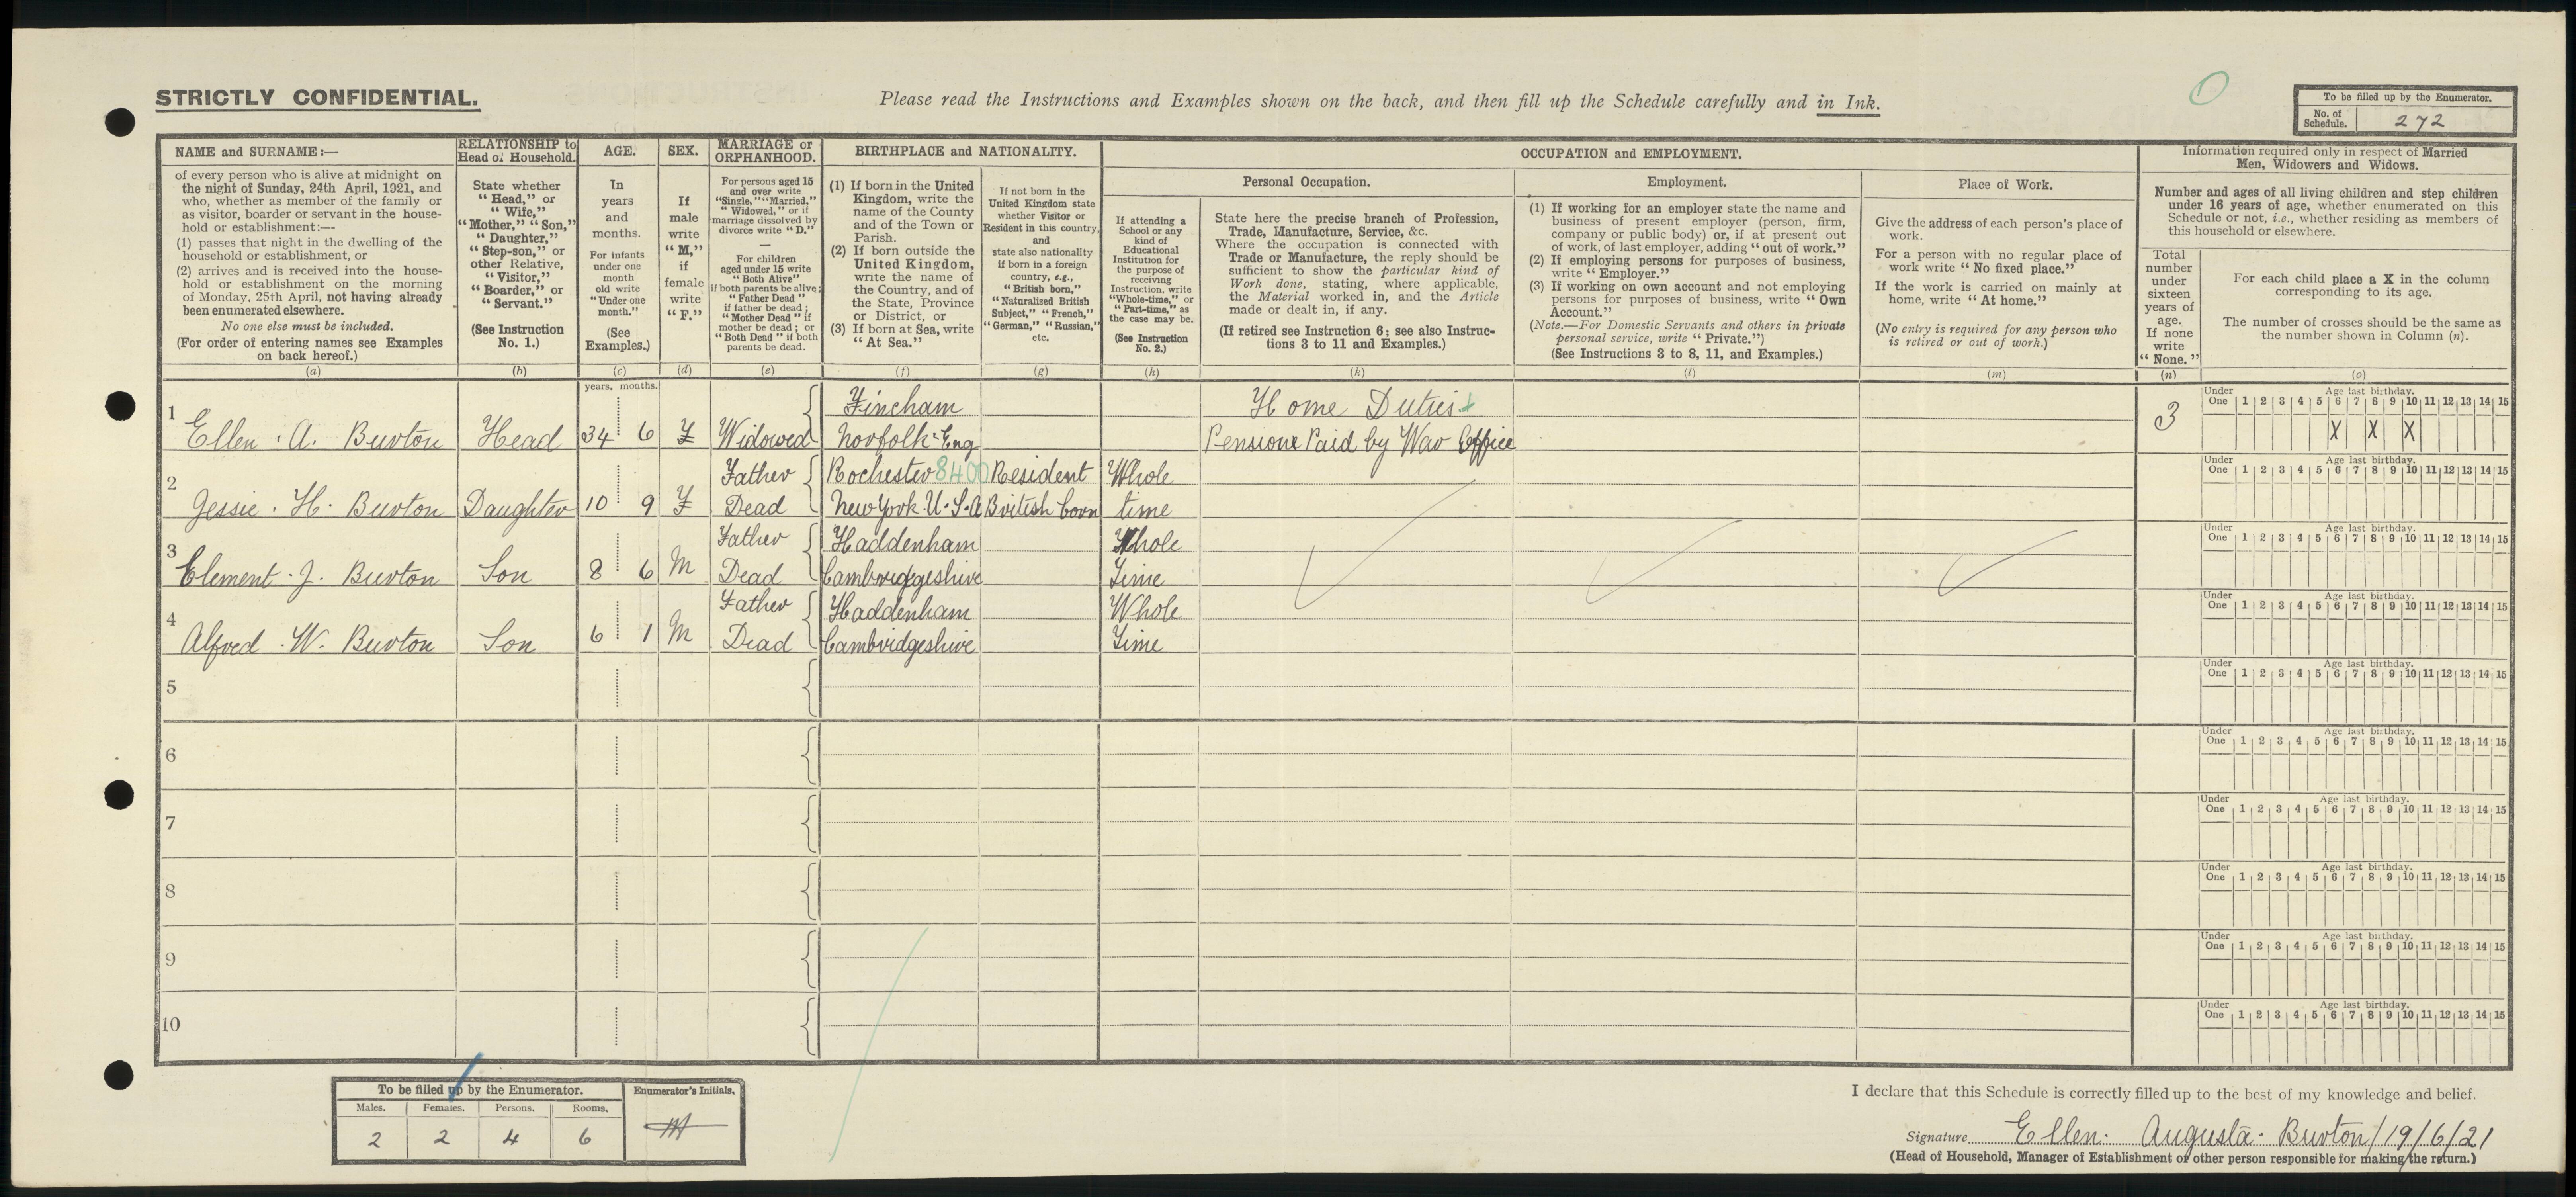 STRICTLY CONFIDENTIAL.
Please read the Instructions and Examples shown on the back, and then fill up the Schedule carefully and in Ink.
To be filled up by the Enumerator.
No. of Schedule. 272
NAME and SURNAME:—
of every person who is alive at midnight on
the night of Sunday, 24th April, 1921, and
who, whether as member of the family or
as visitor, boarder or servant in the house-
hold or establishment:—
(1) passes that night in the dwelling of the
household or establishment, or
(2) arrives and is received into the house-
hold or establishment on the morning
of Monday, 25th April, not having already
been enumerated elsewhere.
No one else must be included.
(For order of entering names see Examples
on back hereof.)
(a)
RELATIONSHIP to
Head of Household.
State whether
"Head," or
"Wife,"
"Mother," "Son,"
"Daughter,"
"Step-son," or
other Relative,
"Visitor,"
"Boarder," or
"Servant."
(See Instruction
No. 1.)
(b)
AGE.
In
years
and
months.
For infants
under one
month
old write
"Under one
month."
(See
Examples.)
(c)
SEX.
If
male
write
"M,"
if
female
write
"F."
(d)
MARRIAGE or
ORPHANHOOD.
For persons aged 15
and over write
"Single," "Married,"
"Widowed," or if
marriage dissolved by
divorce write "D."
For children
aged under 15 write
"Both Alive"
if both parents be alive;
"Father Dead"
if father be dead;
"Mother Dead" if
mother be dead; or
"Both Dead" if both
parents be dead.
(e)
BIRTHPLACE and NATIONALITY.
(1) If born in the United
Kingdom, write the
name of the County
and of the Town or
Parish.
(2) If born outside the
United Kingdom,
write the name of
the Country, and of
the State, Province
or District, or
(3) If born at Sea, write
"At Sea."
(f)
If not born in the
United Kingdom state
whether Visitor or
Resident in this country,
and
state also nationality
if born in a foreign
country, e.g.,
"British born,"
"Naturalized British
Subject," "French,"
"German," "Russian,"
etc.
(g)
OCCUPATION and EMPLOYMENT.
Personal Occupation.
If attending a
School or any
kind of
Educational
Institution for
the purpose of
receiving
Instruction, write
"Whole-time," or
"Part-time," as
the case may be.
(See Instruction
No. 2.)
(h)
State here the precise branch of Profession,
Trade, Manufacture, Service, &c.
Where the occupation is connected with
Trade or Manufacture, the reply should be
sufficient to show the particular kind of
Work done, stating, where applicable,
the Material worked in, and the Article
made or dealt in, if any.
(If retired see Instruction 6; see also Instruc-
tions 3 to 11 and Examples.)
(k)
Employment.
(1) If working for an employer state the name and
business of present employer (person, firm,
company or public body) or, if at present out
of work, of last employer, adding "out of work."
(2) If employing persons for purposes of business,
write "Employer."
(3) If working on own account and not employing
persons for purposes of business, write "Own
Account."
(Note.—For Domestic Servants and others in private
personal service, write "Private.")
(See Instructions 3 to 8, 11, and Examples.)
(l)
Place of Work.
Give the address of each person's place of
work.
For a person with no regular place of
work write "No fixed place."
If the work is carried on mainly at
home, write "At home."
(No entry is required for any person who
is retired or out of work.)
(m)
Information required only in respect of Married
Men, Widowers and Widows.
Number and ages of all living children and step children
under 16 years of age, whether enumerated on this
Schedule or not, i.e., whether residing as members of
this household or elsewhere.
Total
number
under
sixteen
years of
age.
If none
write
"None."
(n)
For each child place a X in the column
corresponding to its age.
The number of crosses should be the same as
the number shown in Column (n).
(o)
years. months.
1 Ellen . A. Burton Head 34 6 F Widowed Fincham Norfolk Eng Home Duties Pension Paid by War Office 3
Under One 1 2 3 4 5 6 7 8 9 10 11 12 13 14 15 Age last birthday.
X X X
2 Jessie . H. Burton Daughter 10 9 F Father Dead Rochester 8400 New York U.S.A Resident British born Whole time
Under One 1 2 3 4 5 6 7 8 9 10 11 12 13 14 15 Age last birthday.
3 Clement . J. Burton Son 8 6 M Father Dead Haddenham Cambridgeshire Whole Time
Under One 1 2 3 4 5 6 7 8 9 10 11 12 13 14 15 Age last birthday.
4 Alfred . W. Burton Son 6 1 M Father Dead Haddenham Cambridgeshire Whole Time
Under One 1 2 3 4 5 6 7 8 9 10 11 12 13 14 15 Age last birthday.
5
Under One 1 2 3 4 5 6 7 8 9 10 11 12 13 14 15 Age last birthday.
6
Under One 1 2 3 4 5 6 7 8 9 10 11 12 13 14 15 Age last birthday.
7
Under One 1 2 3 4 5 6 7 8 9 10 11 12 13 14 15 Age last birthday.
8
Under One 1 2 3 4 5 6 7 8 9 10 11 12 13 14 15 Age last birthday.
9
Under One 1 2 3 4 5 6 7 8 9 10 11 12 13 14 15 Age last birthday.
10
Under One 1 2 3 4 5 6 7 8 9 10 11 12 13 14 15 Age last birthday.
To be filled up by the Enumerator.
Enumerator's Initials.
Males. Females. Persons. Rooms.
2 2 4 6
I declare that this Schedule is correctly filled up to the best of my knowledge and belief.
Signature Ellen. Augusta. Burton/19/6/21
(Head of Household, Manager of Establishment or other person responsible for making the return.)